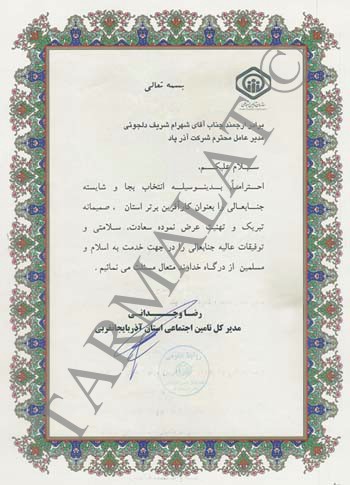 بسمه تعالی
برادر ارجمند جناب آقای شهرام شریف دلجوئی
مدیر عامل محترم شرکت آذر پاد
سلام علیکم
احتراماً بدینوسیله انتخاب بجا و شایسته
جنابعالی را بعنوان کارآفرین برتر استان ، صمیمانه
تبریک و تهنیت عرض نموده سعادت، سلامتی و
توفیقات عالیه جنابعالی را در جهت خدمت به اسلام و
مسلمین از درگاه خداوند متعال مسئلت می نمائیم .
رضا وجدانی
مدیر کل تامین اجتماعی استان آذربایجانغربی
TARMALAT ©